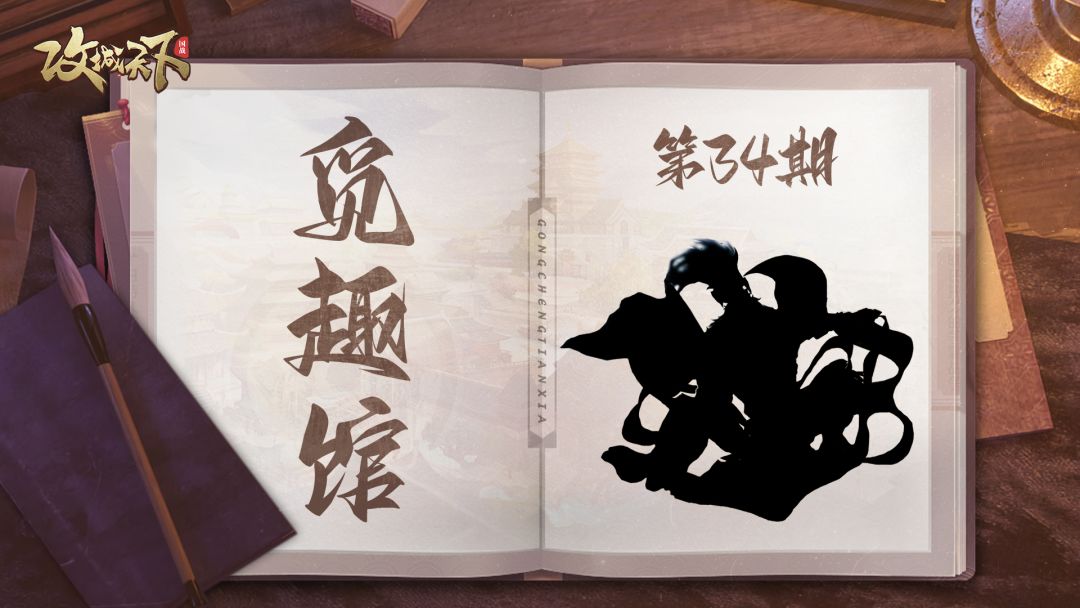 攻城天下
国战
觅趣馆
GONGCHENGTIANXIA
第34期